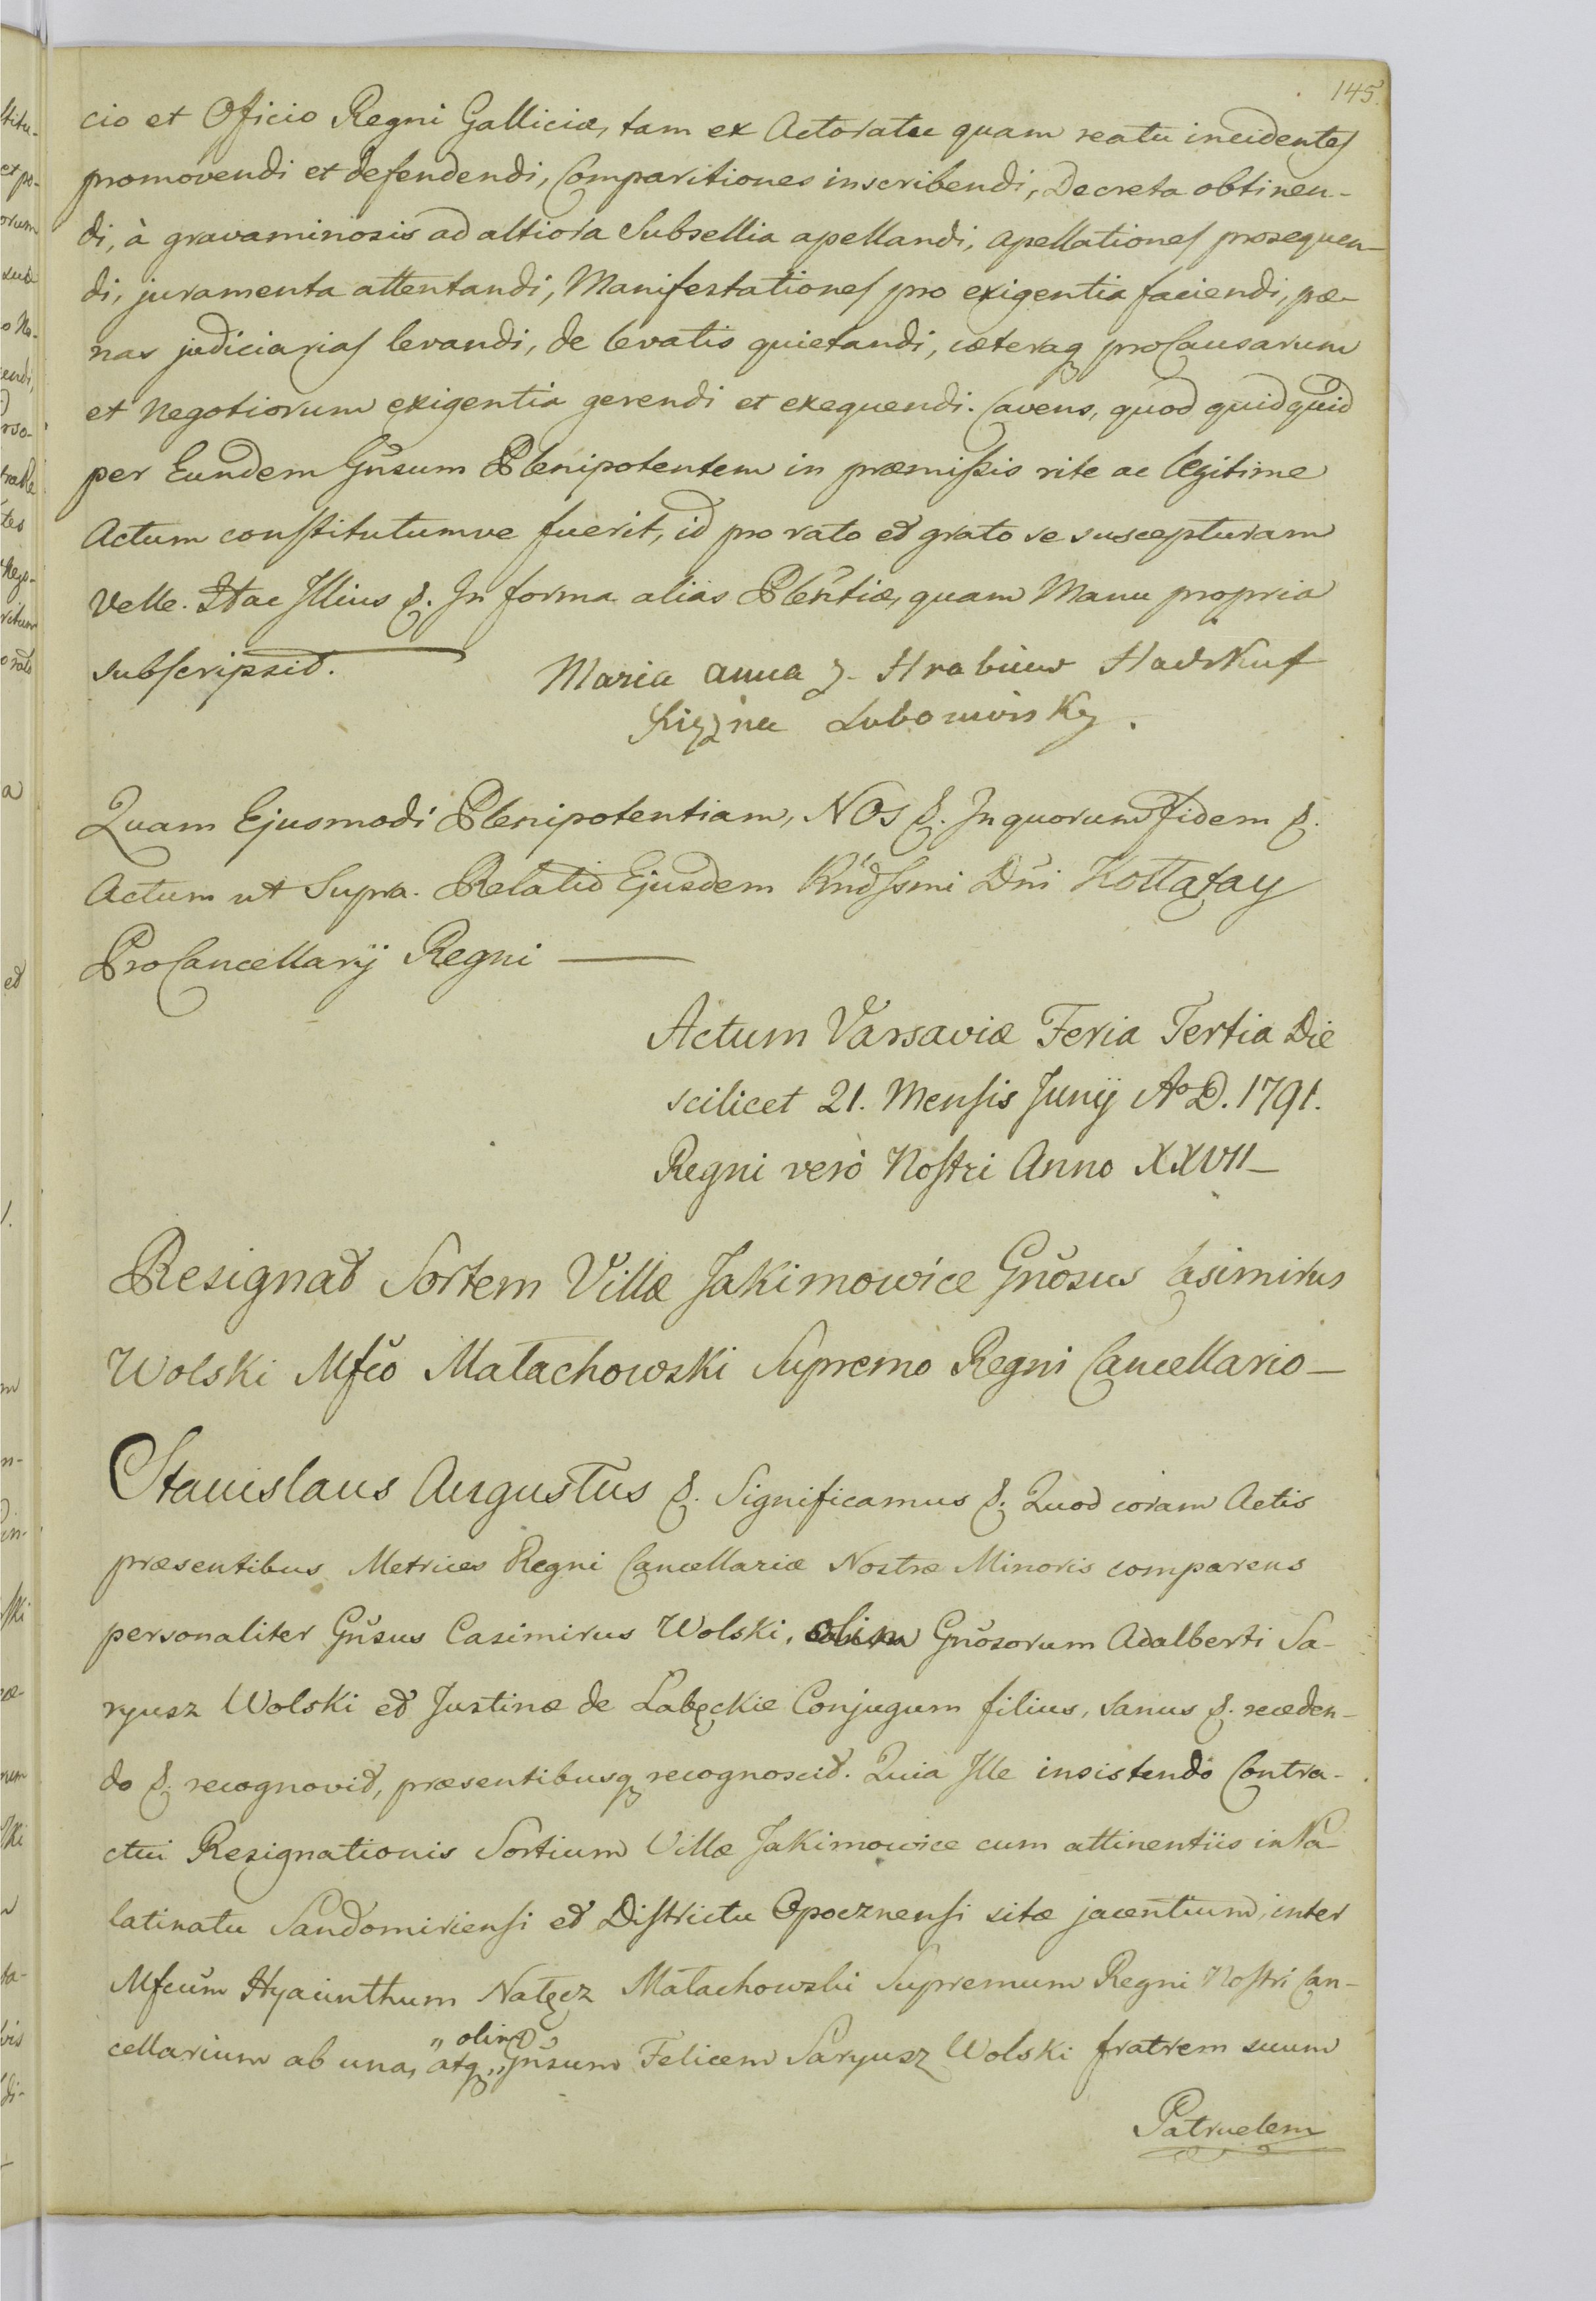 145.
cio et Oficio Regni Galliciæ, tam ex Actoratu quam reatu incidentes
promovendi et defendendi, Comparitiones inscribendi, Decreta obtinen-
di, à gravaminosis ad altiora Subsellia apellandi, apellationes prosequen-
di, juramenta attentandi, Manifestationes pro exigentia faciendi, pæ-
nas judiciarias levandi, de levatis quietandi, cæteraq pro Causarum
et Negotiorum exigentia gerendi et exequendi. Cavens, quod quidquid
per Eundem Gnsum Plenipotentem in præmissis rite ac legitime
Actum constitutumve fuerit, id pro rato et grato se suscepturam
Velle. Itae Illius &. In forma alias Plentiæ, quam Manu propria
subscripsit. Maria anna z. Hrabiuw
Lubomirsky.
Quam Ejusmodi Plenipotentiam, NOS &. In quorum Fidem &.
Actum ut Supra. Relatio Ejusdem Rndssmi Dni Kołłątay
ProCancellarij Regni —
Actum Varsaviæ Feria Tertia Die
scilicet 21. Mensis Junij Ao D. 1791.
Regni verò Nostri Anno XXVII—
Resignat Sortem Villæ Jakimowice Gnosus Casimirus
Wolski Mfco Małachowski Supremo Regni Cancellario—
Stanislaus Augustus &. Significamus &. Quod coram Actis
præsentibus Metrices Regni Cancellariæ Nostræ Minoris comparens
personaliter Gnsus Casimirus Wolski, olim Gnosorum Adalberti Sa-
ryusz Wolski et Justinæ de Łabęckie Conjugum filius, sanus &. receden-
do &. recognovit, præsentibusq recognoscit. Quia Ille insistendo Contra-
ctui Resignationis Sortium Villæ Jakimowice cum attinentiis in Pa-
latinatu Sandomiriensi et Districtu Opocznensi sitæ jacentium, inter
Mfcum Hyacinthum Nałęcz Małachowski Supremum Regni Nostri Can-
cellarium ab una, atq „olim„ Gnsum Felicem Saryusz Wolski fratrem suum
Patruelem